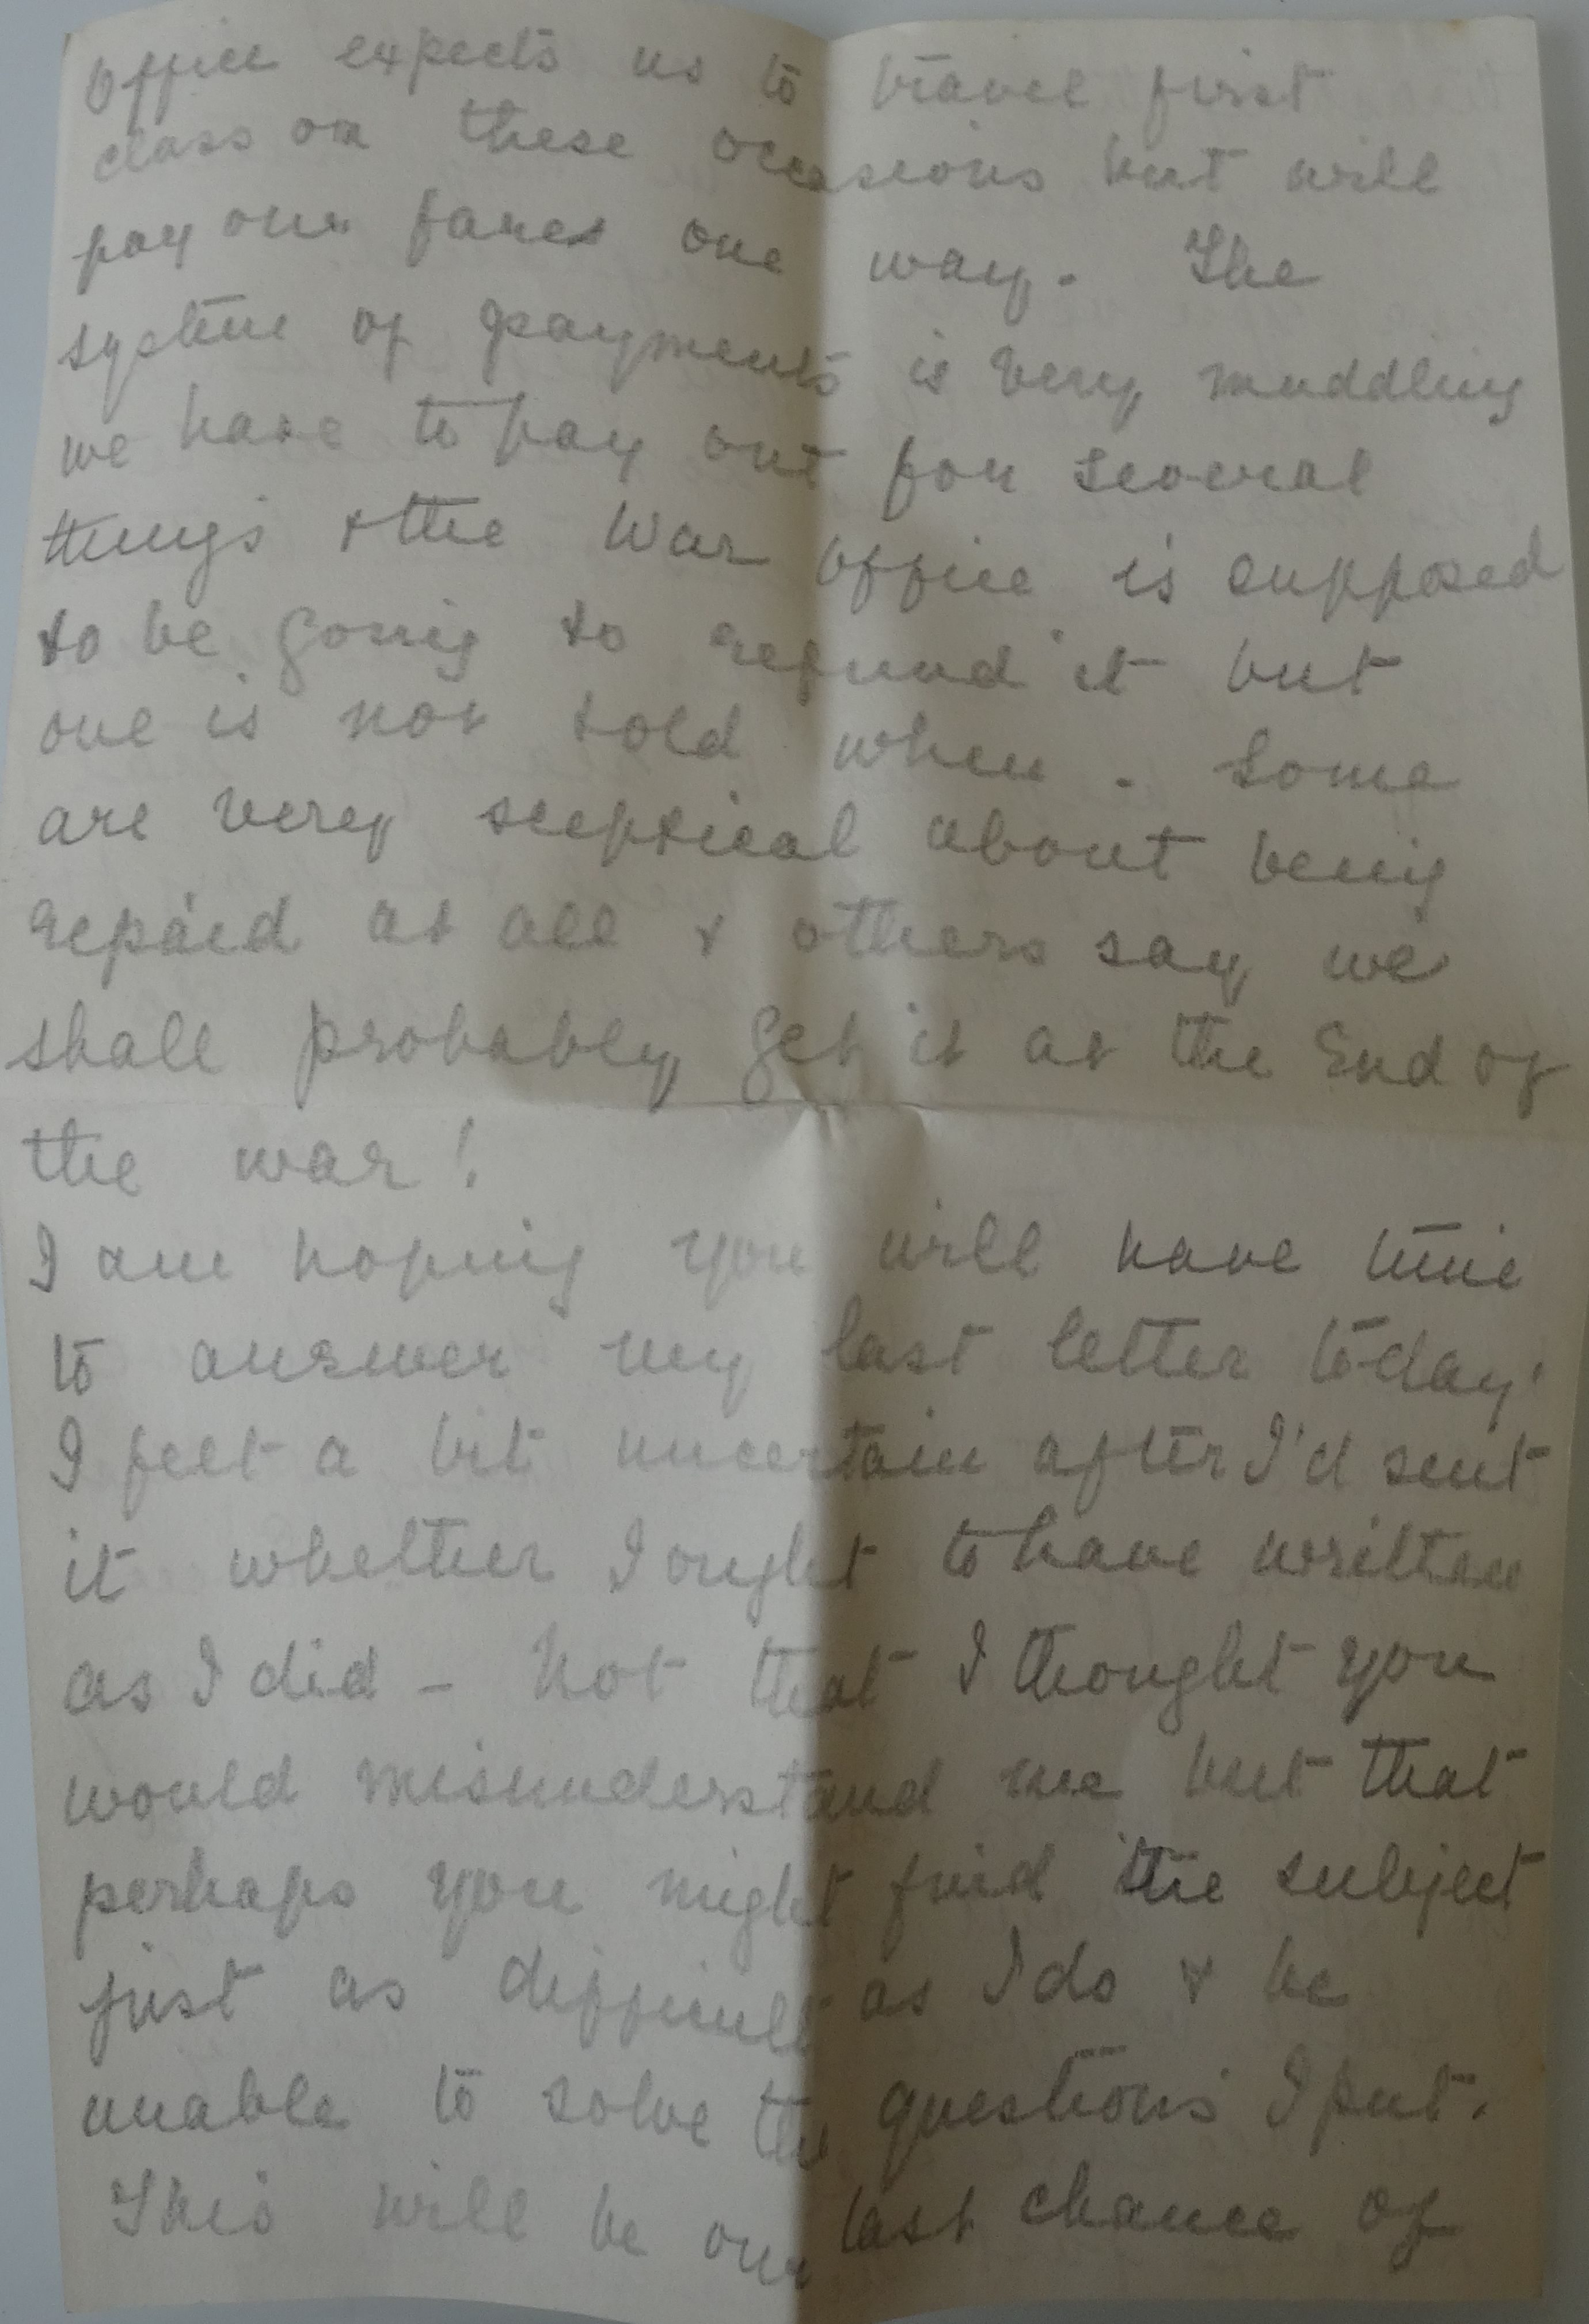 office expects us to travel first
class on these occasions but will
pay our fares one way. The
system of payments is very muddling
we have to pay out for several
things & the War office is supposed
to be going to refund it but
one is not told when. Some
are very sceptical about being
repaid at all & others say we
shall probably get it at the End of
the war!
I am hoping you will have time
to answer my last letter today.
I felt a bit uncertain after I'd sent
it whether I ought to have written
as I did - Not that I thought you
would misunderstand me but that
perhaps you might find the subject
just as difficult as I do & be
unable to solve the questions I put.
This will be our last chance of